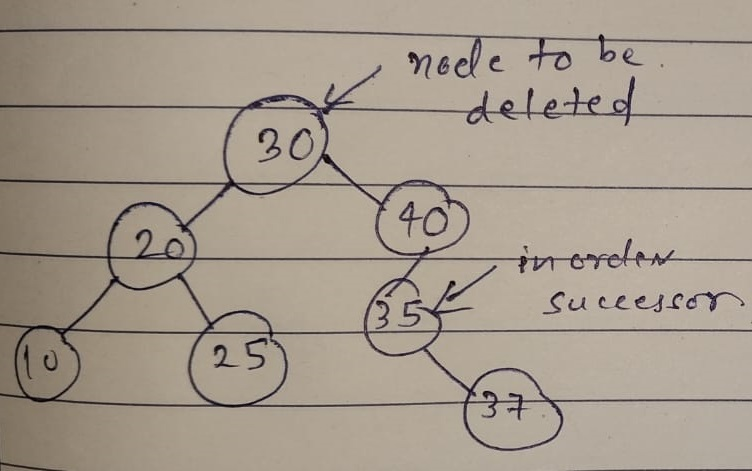 node to be
deleted
30
40
20
inorder
successor
35
10
25
37